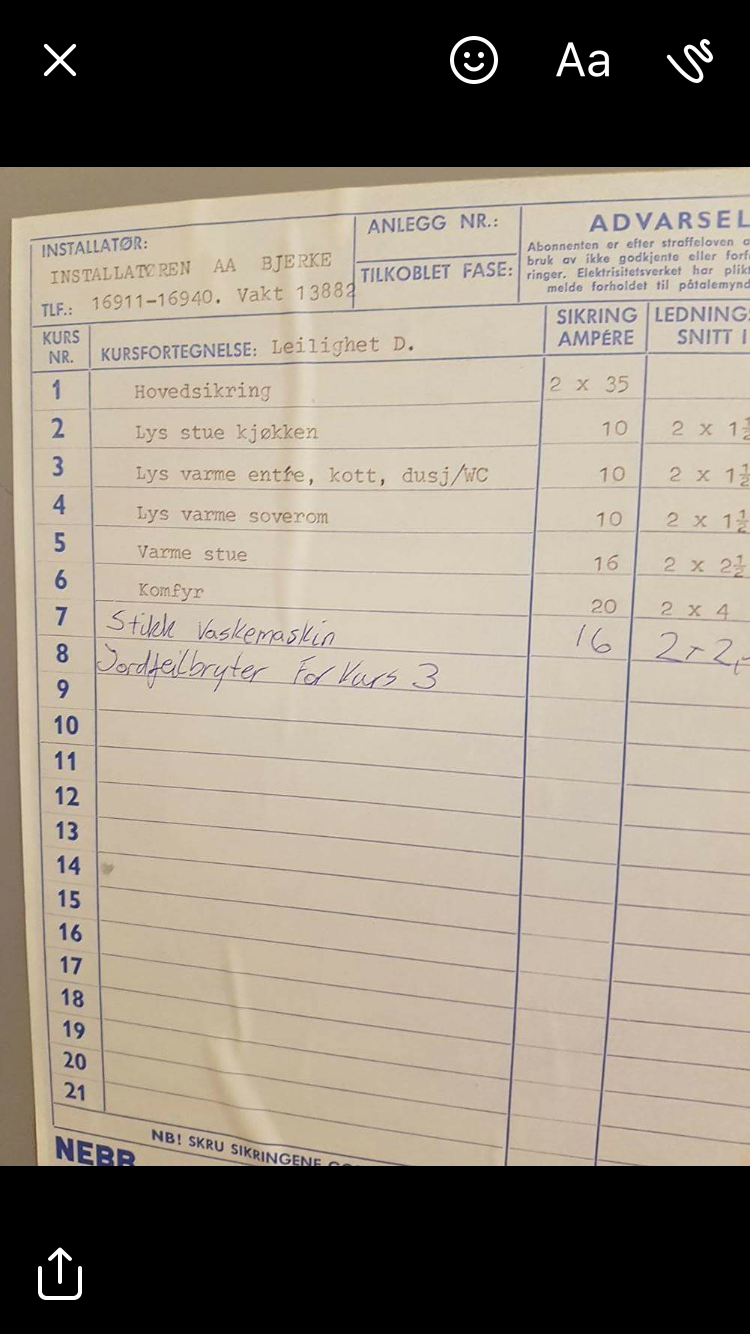 Aa
INSTALLATØR:
INSTALLATØREN AA BJERKE
TLF.: 16911-16940. Vakt 13882
ANLEGG NR.:
TILKOBLET FASE:
ADVARSEL
Abonnenten er efter straffeloven
bruk av ikke godkjente eller
ringer. Elektrisitetsverket har plikt
melde forholdet til påtalemynd
KURS NR.
KURSFORTEGNELSE: Leilighet D.
SIKRING AMPÉRE
LEDNINGS SNITT I
1 Hovedsikring 2 x 35
2 Lys stue kjøkken 10 2 x 1½
3 Lys varme entre, kott, dusj/WC 10 2 x 1½
4 Lys varme soverom 10 2 x 1½
5 Varme stue 16 2 x 2½
6 Komfyr 20 2 x 4
7 Stikk Vaskemaskin 16
8 Jordfeilbryter For Kurs 3
9
10
11
12
13
14
15
16
17
18
19
20
21
NB! SKRU SIKRINGENE
NEBB